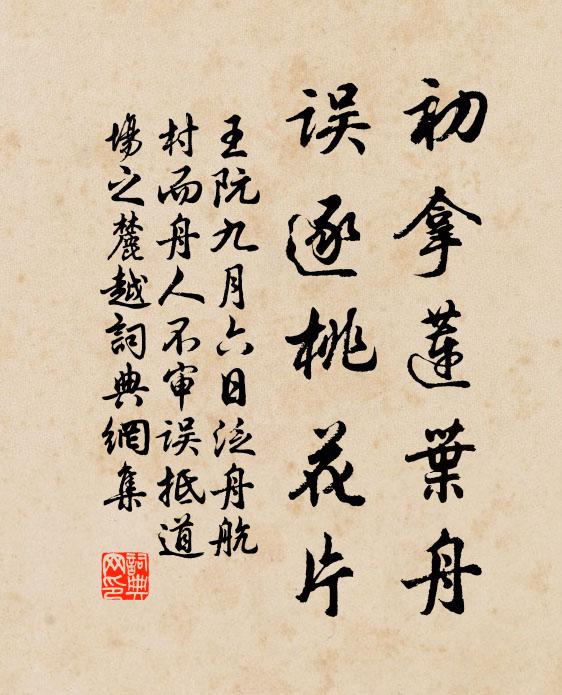 初拿蓮葉舟
误逐桃花片
王阮九月六日泛舟航
村而舟人不审误抵道
場之麓越詞典網集
詞典
网印